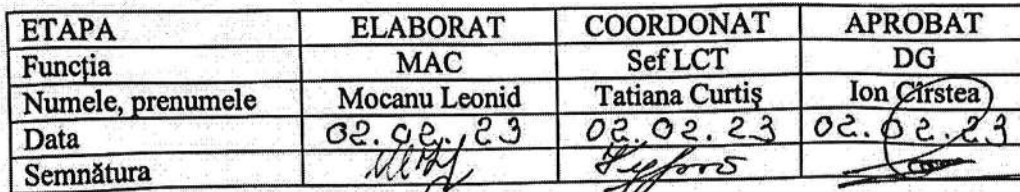 ETAPA ELABORAT COORDONAT APROBAT
Funcția MAC Sef LCT DG
Numele, prenumele Mocanu Leonid Tatiana Curtiș Ion Cîrstea
Data 02.02.23 02.02.23 02.02.23
Semnătura